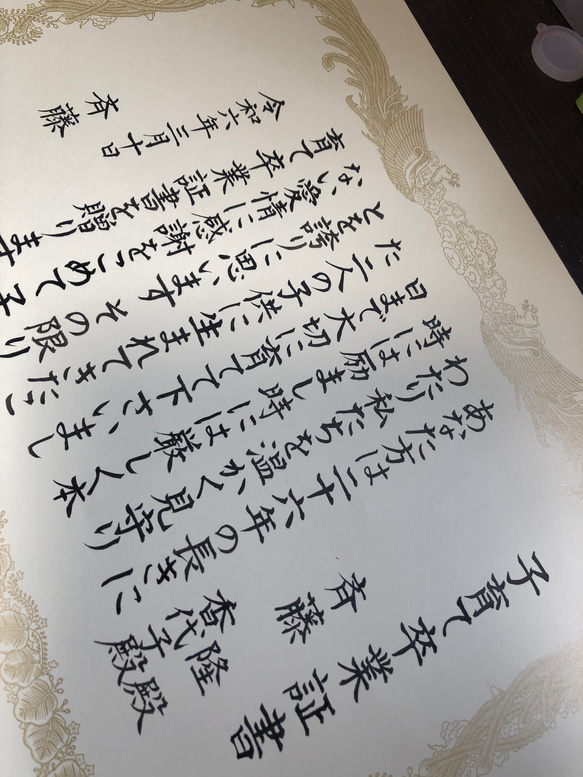 子育て卒業証書
斉藤 隆殿
香代子殿
あなた方は二十六年の長きに
わたり私たちを温かく見守り
時には励まし時には厳しく本
日まで大切に育てて下さいまし
た二人の子供に生まれてきたこ
とを誇りに思います その限り
ない愛情に感謝をこめて子
育て卒業証書を贈ります
令和六年三月十日
斉藤